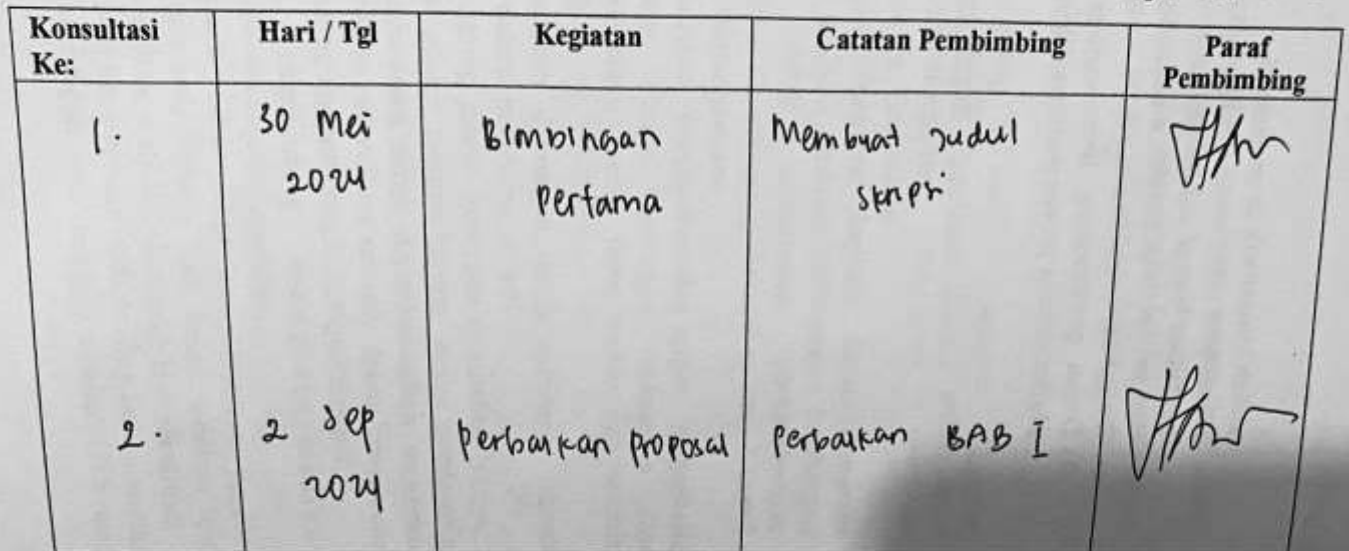 Konsultasi Ke: | Hari / Tgl | Kegiatan | Catatan Pembimbing | Paraf Pembimbing
1. | 30 Mei 2024 | Bimbingan Pertama | Membuat Judul Skripsi
2. | 2 Sep 2024 | Perbaikan proposal | Perbaikan BAB I